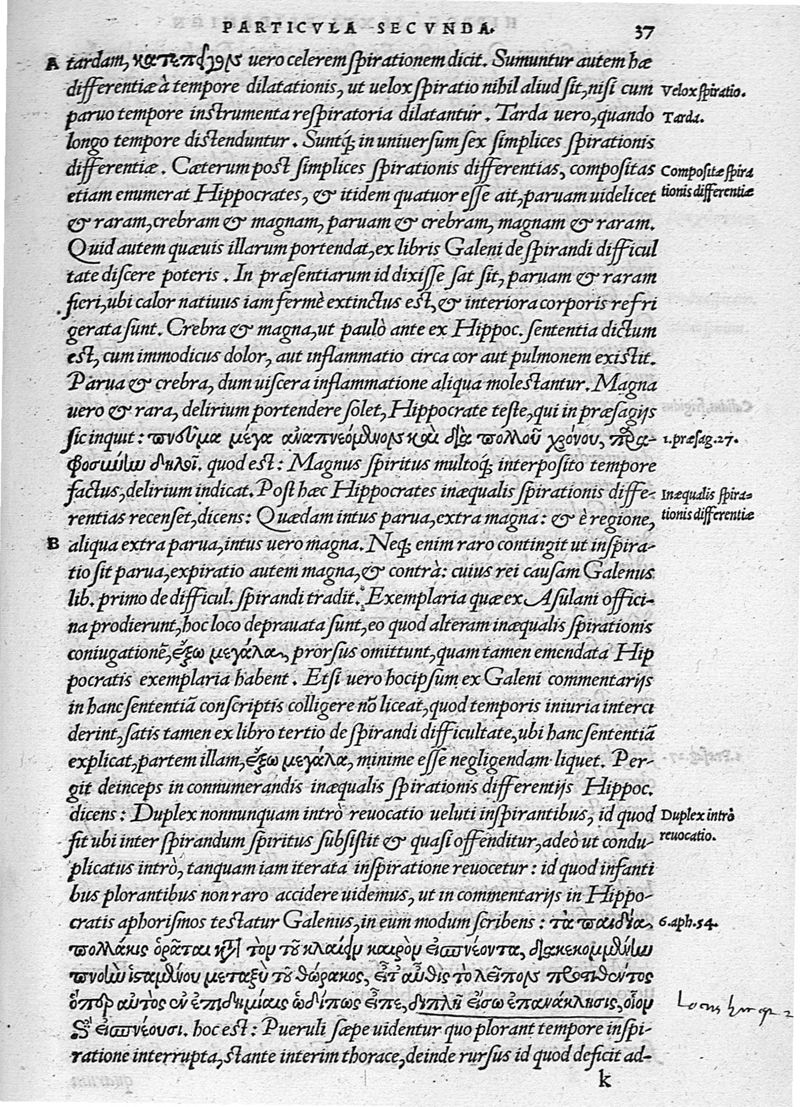 PARTICVLA SECVNDA. 37
A tardam, κατεπείγον vero celerem spirationem dicit. Sumuntur autem hæ
differentiæ à tempore dilatationis, ut uelox spiratio nihil aliud sit, nisi cum
Velox spiratio.
paruo tempore instrumenta respiratoria dilatantur. Tarda uero, quando
Tarda.
longo tempore distenduntur. Suntq́; in uniuersum sex simplices spirationis
differentiæ. Cæterum post simplices spirationis differentias, compositas
Compositæ spira
etiam enumerat Hippocrates, & itidem quatuor esse ait, paruam uidelicet
tionis differentiæ
& raram, crebram & magnam, paruam & crebram, magnam & raram.
Quid autem quæuis illarum portendat, ex libris Galeni de spirandi difficul
tate discere poteris. In præsentiarum id dixisse sat sit, paruam & raram
fieri, ubi calor natiuus iam fermè extinctus est, & interiora corporis refri
gerata sunt. Crebra & magna, ut paulò ante ex Hippoc. sententia dictum
est, cum immodicus dolor, aut inflammatio circa cor aut pulmonem existit.
Parua & crebra, dum uiscera inflammatione aliqua molestantur. Magna
uero & rara, delirium portendere solet, Hippocrate teste, qui in præsagijs
sic inquit: πνεῦμα μέγα ἀναπνεόμενον καὶ διὰ πολλοῦ χρόνου, παρα-
1. præsag. 27.
φροσύνην δηλοῖ. quod est: Magnus spiritus multoq́; interposito tempore
factus, delirium indicat. Post hæc Hippocrates inæqualis spirationis diffe-
Inæqualis spira-
rentias recenset, dicens: Quædam intus parua, extra magna: & è regione,
tionis differentiæ
B aliqua extra parua, intus uero magna. Neq; enim raro contingit ut inspira-
tio sit parua, expiratio autem magna, & contrà: cuius rei causam Galenus
lib. primo de difficul. spirandi tradit. Exemplaria quæ ex Asulani offici-
na prodierunt, hoc loco deprauata sunt, eo quod alteram inæqualis spirationis
coniugationẽ, ἔξω μεγάλα, prorsus omittunt, quam tamen emendata Hip
pocratis exemplaria habent. Etsi uero hoc ipsum ex Galeni commentarijs
in hanc sententiam conscriptis colligere nõ liceat, quod temporis iniuria interci
derint, satis tamen ex libro tertio de spirandi difficultate, ubi hanc sententiã
explicat, partem illam, ἔξω μεγάλα, minime esse negligendam liquet. Per-
git deinceps in connumerandis inæqualis spirationis differentijs Hippoc.
dicens: Duplex nonnunquam intrò reuocatio ueluti inspirantibus, id quod
Duplex intrò
fit ubi inter spirandum spiritus subsistit & quasi offenditur, adeò ut condu-
reuocatio.
plicatus intrò, tanquam iam iterata inspiratione reuocetur: id quod infanti
bus plorantibus non raro accidere uidemus, ut in commentarijs in Hippo-
cratis aphorismos testatur Galenus, in eum modum scribens: τὰ παιδία,
6. aph. 54.
πολλάκις ὁρᾶται κατὰ τὸν τοῦ κλαίειν καιρὸν εἰσπνέοντα, διακεκομμένην
πνοὴν ἱσταμένου μεταξὺ τοῦ θώρακος, εἶτ' αὖθις τὸ λεῖπον προσθέντος
ὅπερ αὐτὸς ἐν ἐπιδημίαις ὡδίπως εἶπε, διπλῆ εἴσω ἐπανάκλησις, οἷον
ἐπεισπνέουσι. hoc est: Pueruli sæpe uidentur quo plorant tempore inspi-
ratione interrupta, stante interim thorace, deinde rursus id quod deficit ad-
k